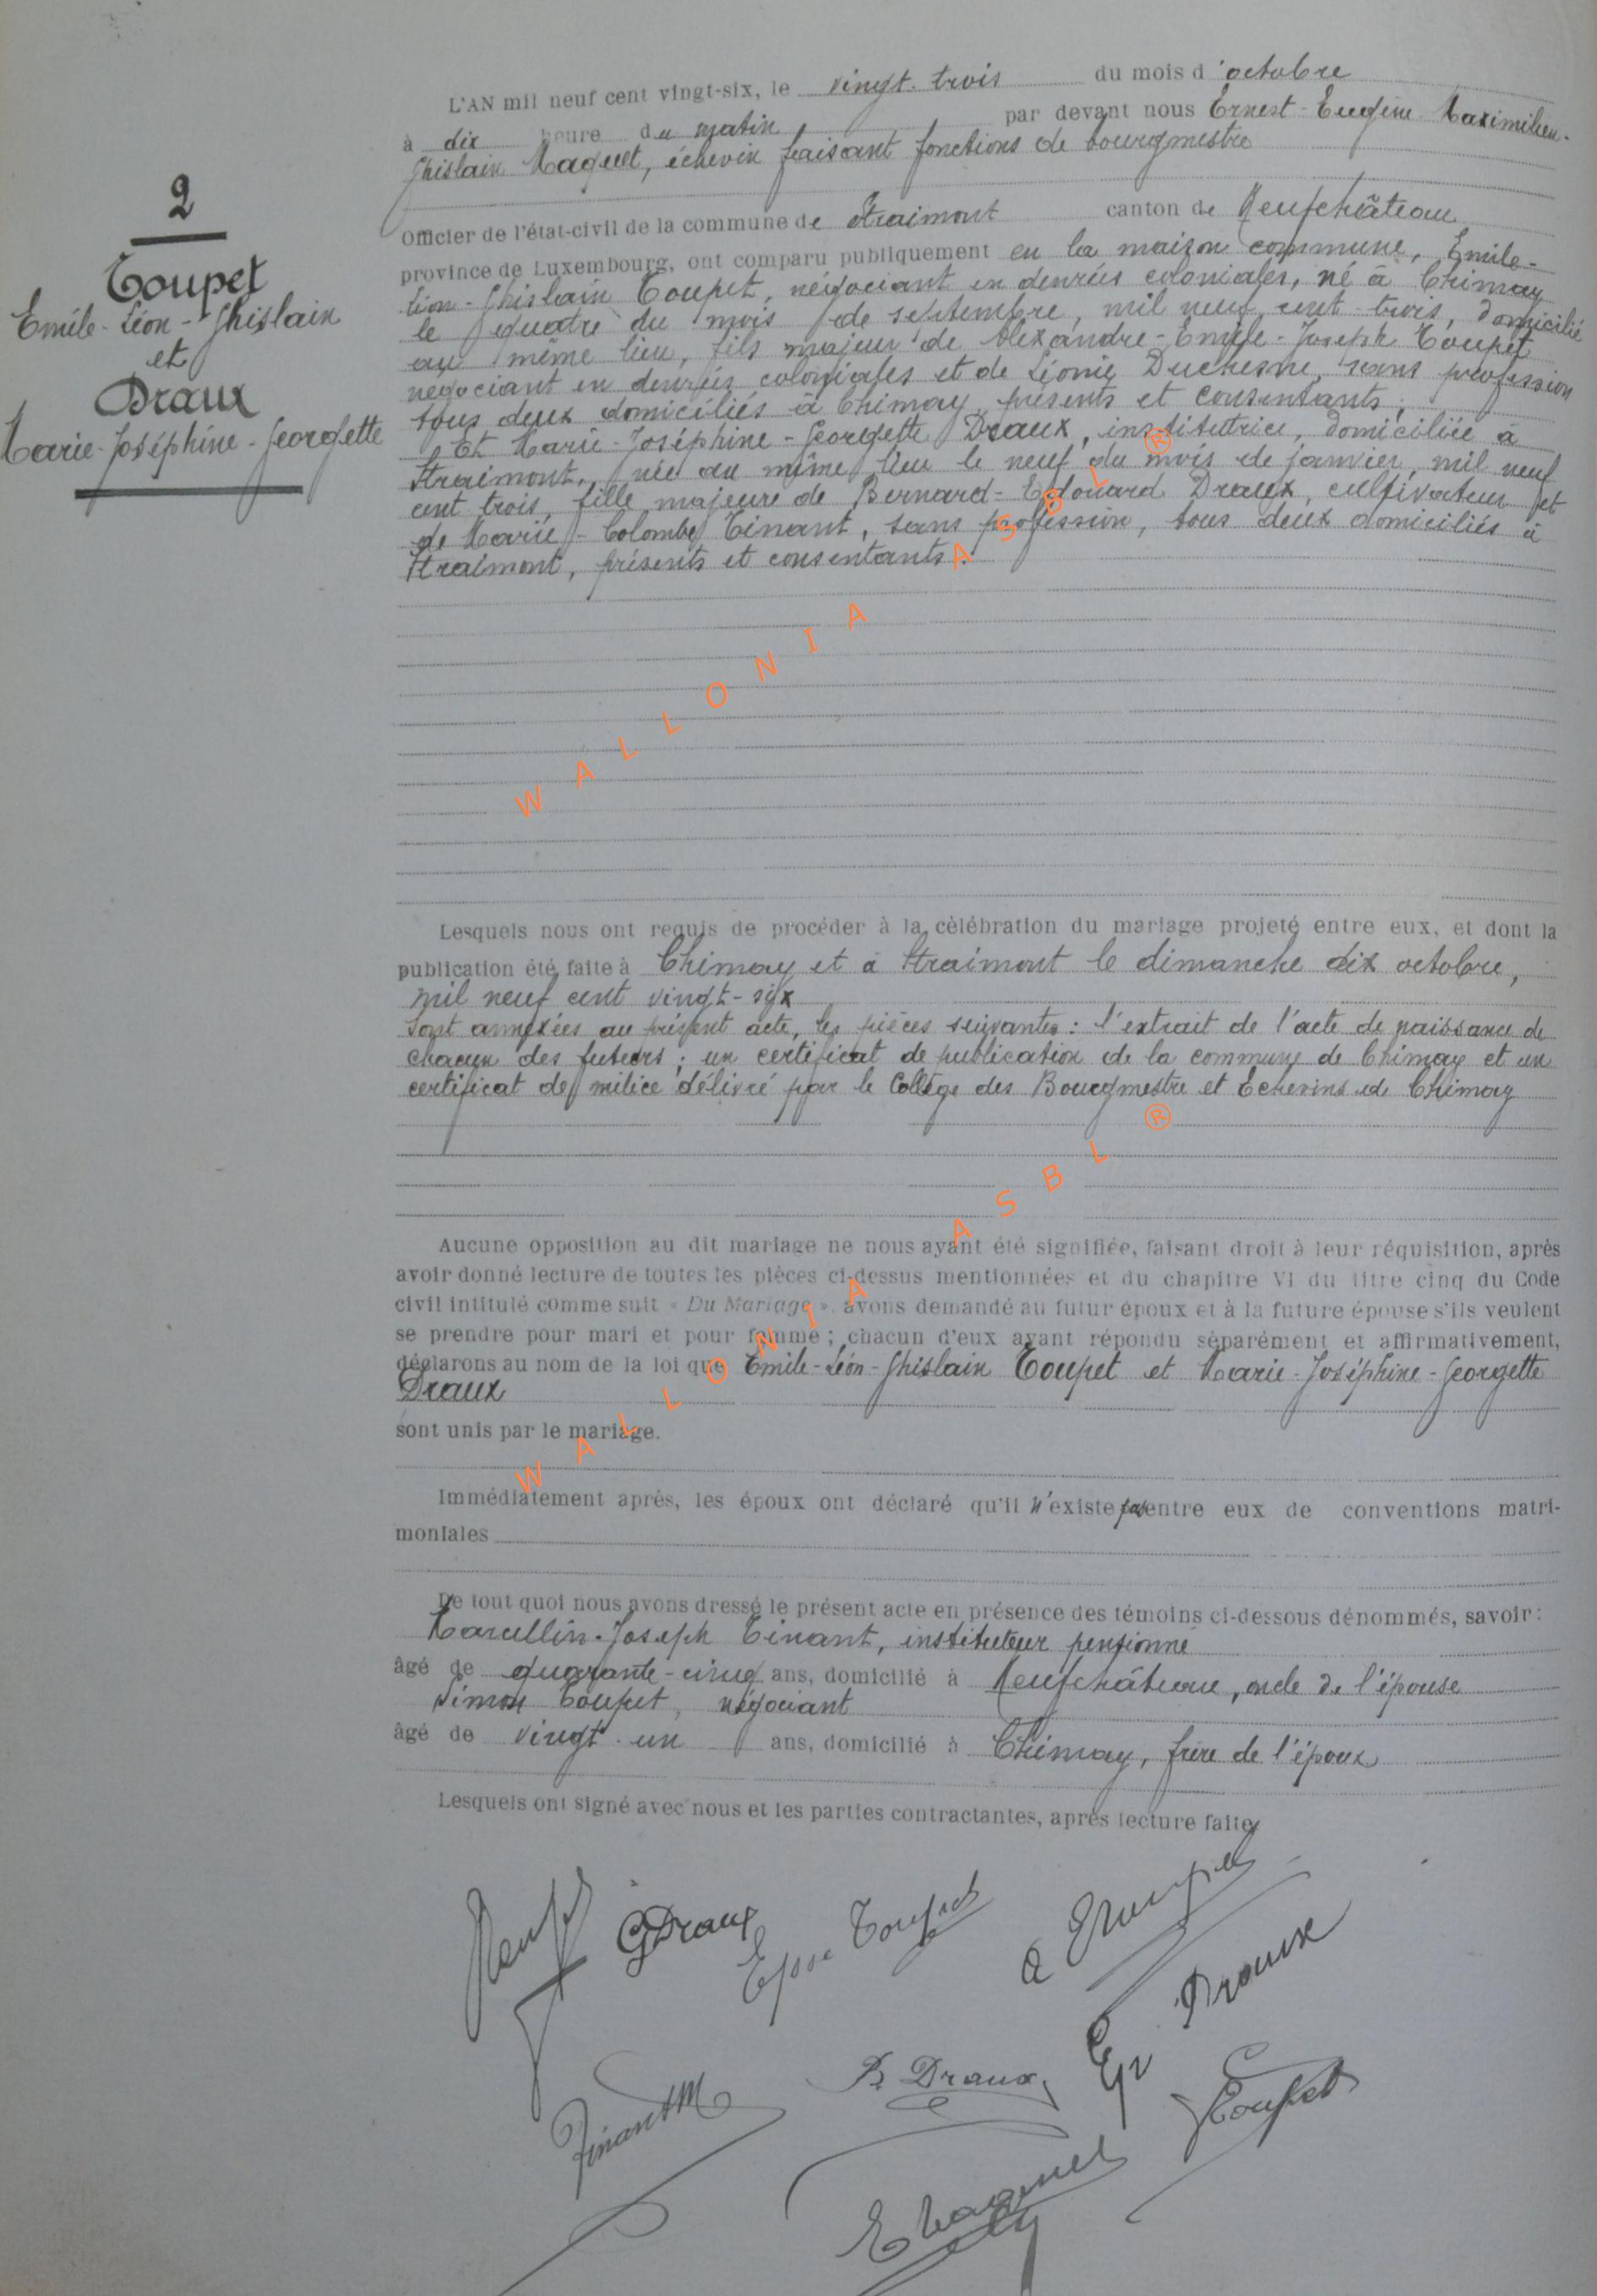 2
Toupet
Emile-Léon-Ghislain
et
Draux
Marie-Joséphine-Georgette
L'AN mil neuf cent vingt-six, le vingt-trois du mois d'octobre
à dix heure du matin par devant nous Ernest-Eugène Maximilien-
Ghislain Maquet, échevin faisant fonctions de bourgmestre
Officier de l'état-civil de la commune de Straimont canton de Neufchâteau
province de Luxembourg, ont comparu publiquement en la maison commune, Emile-
Léon-Ghislain Toupet, négociant en denrées coloniales, né à Chimay
le quatre du mois de septembre, mil neuf cent trois, domicilié
au même lieu, fils majeur de Alexandre-Emile-Joseph Toupet
négociant en denrées coloniales et de Léonie Duchesne, sans profession
tous deux domiciliés à Chimay, présents et consentants;
Et Marie-Joséphine-Georgette Draux, institutrice, domiciliée à
Straimont, née au même lieu le neuf du mois de janvier, mil neuf
cent trois, fille majeure de Bernard-Edouard Draux, cultivateur et
de Marie-Colombe Tinant, sans profession, tous deux domiciliés à
Straimont, présents et consentants.
WALLONIA ASBL ®
Lesquels nous ont requis de procéder à la célébration du mariage projeté entre eux, et dont la
publication été faite à Chimay et à Straimont le dimanche dix octobre,
mil neuf cent vingt-six
Sont annexées au présent acte, les pièces suivantes : l'extrait de l'acte de naissance de
chacun des futurs ; un certificat de publication de la commune de Chimay et un
certificat de milice délivré par le Collège des Bourgmestre et Echevins de Chimay
WALLONIA ASBL ®
Aucune opposition au dit mariage ne nous ayant été signifiée, faisant droit à leur réquisition, après
avoir donné lecture de toutes les pièces ci-dessus mentionnées et du chapitre VI du titre cinq du Code
civil intitulé comme suit « Du Mariage ». avons demandé au futur époux et à la future épouse s'ils veulent
se prendre pour mari et pour femme ; chacun d'eux ayant répondu séparément et affirmativement,
déclarons au nom de la loi que Emile-Léon-Ghislain Toupet et Marie-Joséphine-Georgette
Draux
sont unis par le mariage.
Immédiatement après, les époux ont déclaré qu'il n'existe pas entre eux de conventions matri-
moniales
De tout quoi nous avons dressé le présent acte en présence des témoins ci-dessous dénommés, savoir :
Marcellin-Joseph Tinant, instituteur pensionné
âgé de quarante-cinq ans, domicilié à Neufchâteau, oncle de l'épouse
Simon Toupet, négociant
âgé de vingt-un ans, domicilié à Chimay, frère de l'époux
Lesquels ont signé avec nous et les parties contractantes, après lecture faite
G Draux
Toupet
B. Draux
Draux
Tinant M
Toupet
E Maquet